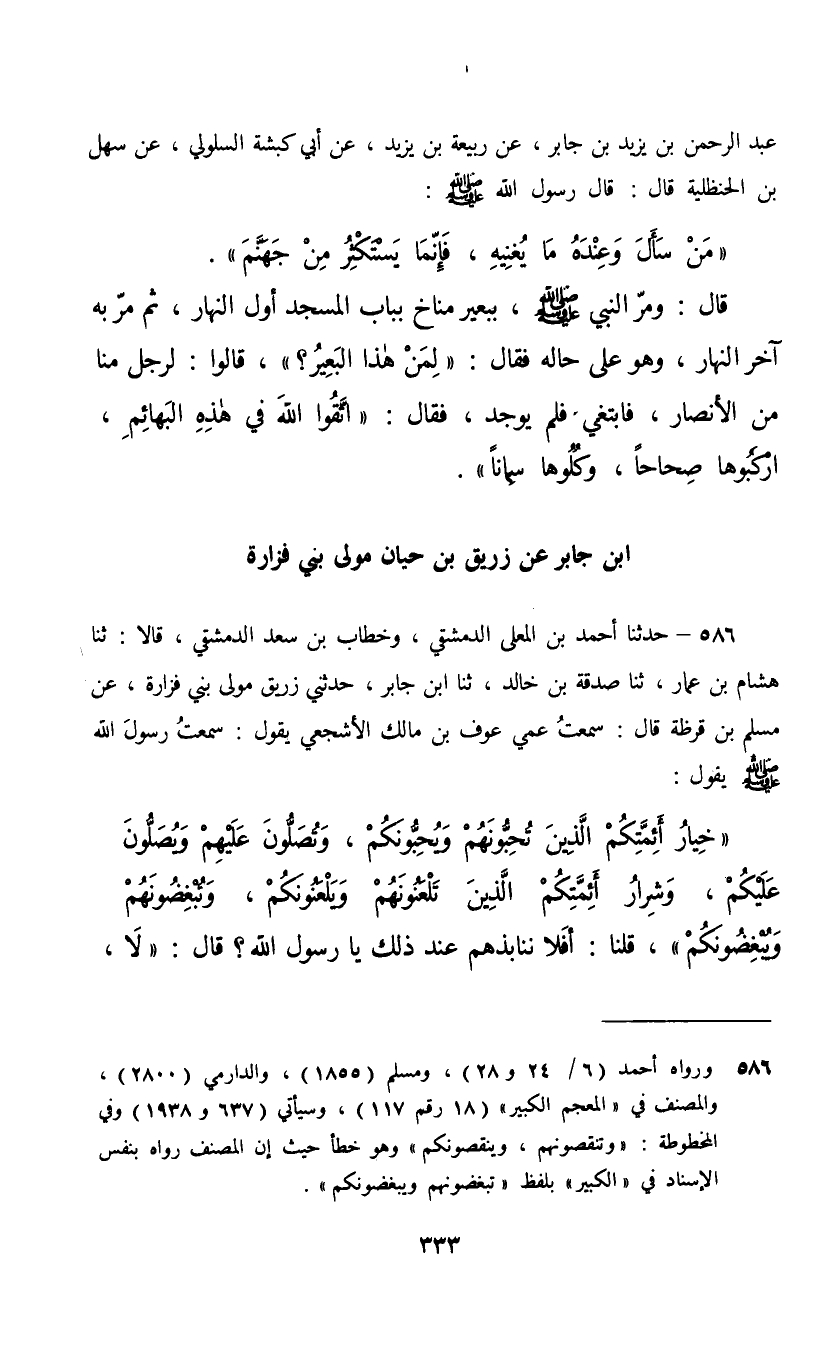 عبد الرحمن بن يزيد بن جابر ، عن ربيعة بن يزيد ، عن أبي كبشة السلولي ، عن سهل
بن الحنظلية قال : قال رسول الله ﷺ :
« مَنْ سَأَلَ وَعِنْدَهُ مَا يُغنِيهِ ، فَإِنَّمَا يَسْتَكْثِرُ مِنْ جَهَنَّمَ » .
قال : ومرّ النبي ﷺ ، ببعير مناخ بباب المسجد أول النهار ، ثم مرّ به
آخر النهار ، وهو على حاله فقال : « لِمَنْ هٰذا البَعِيرُ؟ » ، قالوا : لرجل منا
من الأنصار ، فابتغي فلم يوجد ، فقال : « اتَّقُوا اللهَ في هٰذِهِ البَهائِمِ ،
ارْكَبُوها صِحاحاً ، وكُلُوها سِماناً » .
ابن جابر عن زريق بن حيان مولى بني فزارة
٥٨٦ – حدثنا أحمد بن المعلى الدمشقي ، وخطاب بن سعد الدمشقي ، قالا : ثنا
هشام بن عمار ، ثنا صدقة بن خالد ، ثنا ابن جابر ، حدثني زريق مولى بني فزارة ، عن
مسلم بن قرظة قال : سمعتُ عمي عوف بن مالك الأشجعي يقول : سمعتُ رسولَ الله
ﷺ يقول :
« خِيارُ أَئِمَّتِكُمْ الَّذِينَ تُحِبُّونَهُمْ وَيُحِبُّونَكُمْ ، وَتُصَلُّونَ عَلَيْهِمْ وَيُصَلُّونَ
عَلَيْكُمْ ، وَشِرارُ أَئِمَّتِكُمْ الَّذِينَ تَلْعَنُونَهُمْ وَيَلْعَنُونَكُمْ ، وَتُبْغِضُونَهُمْ
وَيُبْغِضُونَكُمْ » ، قلنا : أفلا ننابذهم عند ذلك يا رسول الله ؟ قال : « لَا ،
٥٨٦ ورواه أحمد (٦/ ٢٤ و ٢٨) ، ومسلم (١٨٥٥) ، والدارمي (٢٨٠٠) ،
والمصنف في « المعجم الكبير » (١٨ رقم ١١٧) ، وسيأتي (٦٣٧ و ١٩٣٨) وفي
المخطوطة : « وتنقصونهم ، وينقصونكم » وهو خطأ حيث إن المصنف رواه بنفس
الإسناد في « الكبير » بلفظ « تبغضونهم ويبغضونكم » .
٣٣٣